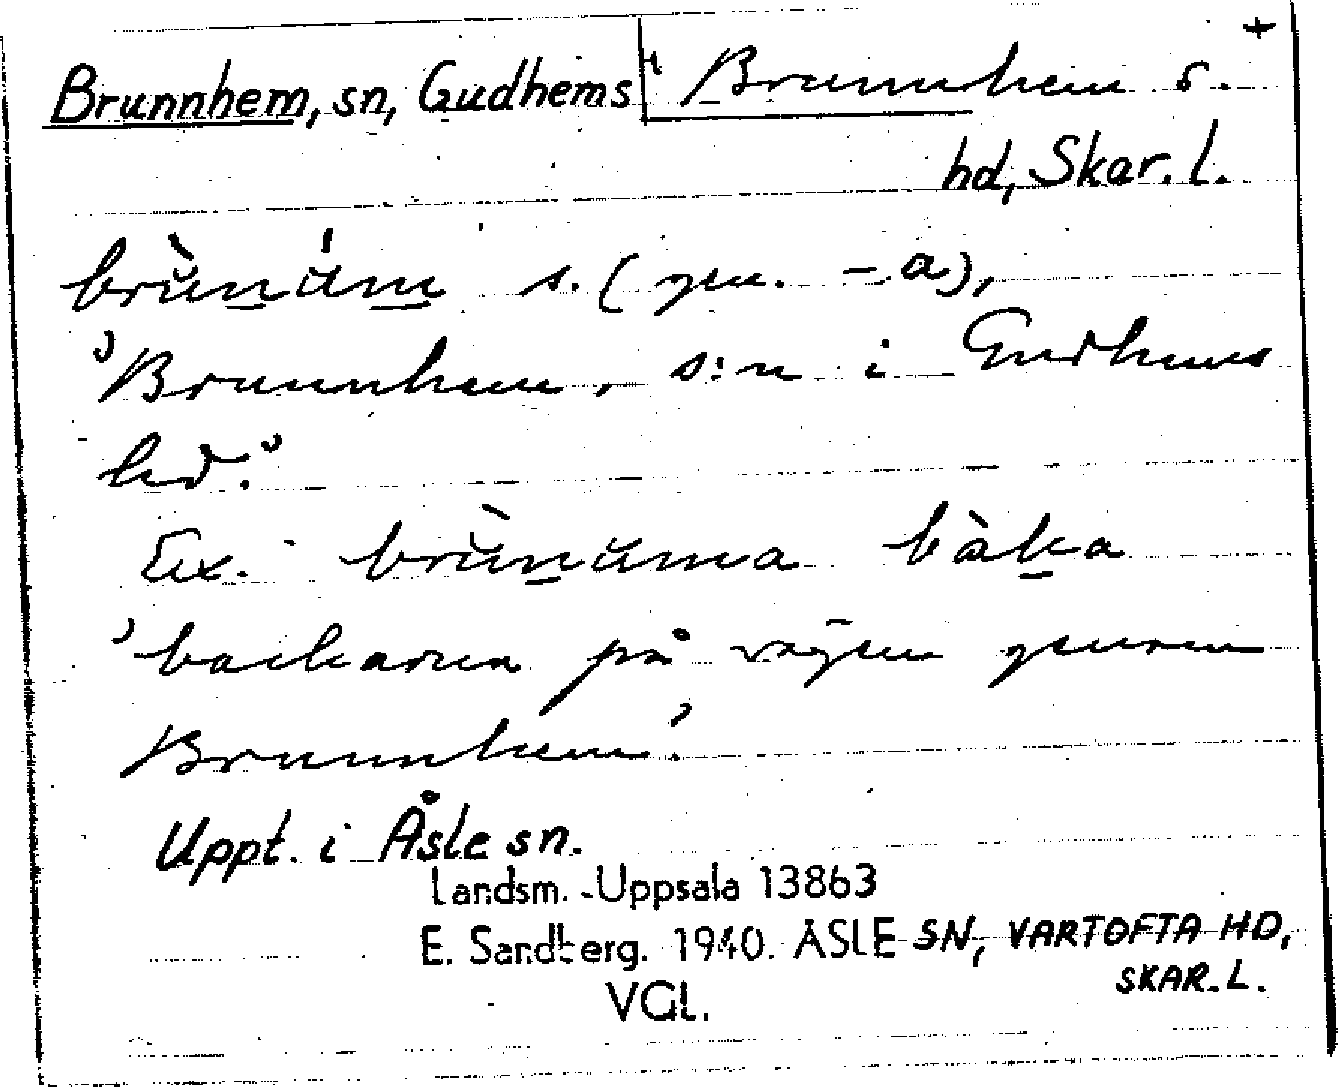 Brunnhem, sn, Gudhems Brunnhem s. +
hd, Skar. l.
brùnám s. (gen. -a),
'Brunnhem, s:n i Gudhems
hd.'
Ex. brùnåma bàka
'backarna på vägen genom
Brunnhem.'
Uppt. i Åsle sn.
Landsm. Uppsala 13863
E. Sandberg. 1940. ÅSLE SN, VARTOFTA HD,
SKAR. L.
VGL.